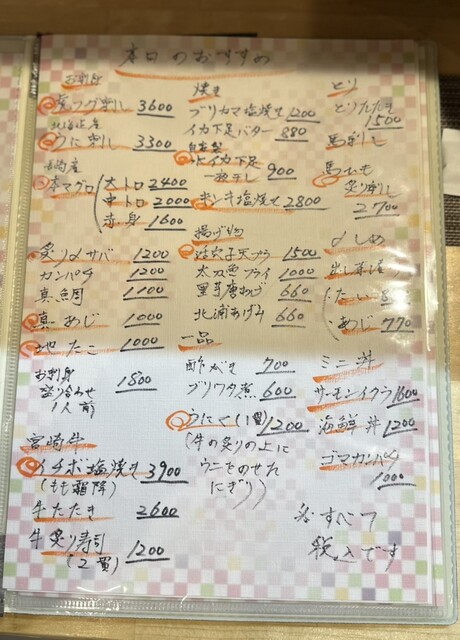 本日のおすすめ
お刺身
虎フグ刺し 3600
北海道産
うに刺し 3300
長崎産
本マグロ
大トロ 2400
中トロ 2000
赤身 1600
炙り〆サバ 1200
カンパチ 1200
真鯛 1100
真あじ 1000
地たこ 1000
お刺身
盛り合わせ 1800
1人前
宮崎牛
イチボ塩焼き 3900
(もも霜降)
牛たたき 2600
牛炙り寿司 1200
(2貫)
焼き
ブリカマ塩焼き 1200
イカ下足バター 880
自家製
イカ下足
一夜干し 900
キンキ塩焼き 2800
揚げ物
穴子天プラ 1500
太刀魚フライ 1000
里芋唐あげ 660
北浦あげみ 660
一品
酢がき 700
ブリワタ煮 600
うにく(1貫) 1200
(牛の炙りの上に
ウニをのせた
にぎり)
とり
とりたたき
1500
馬刺し
馬もも
炙り刺し
2700
〆しめ
出し茶漬
・たい
・あじ 770
ミニ丼
サーモンイクラ 1600
海鮮丼 1200
ゴマカンパチ
1000
※すべて
税込です